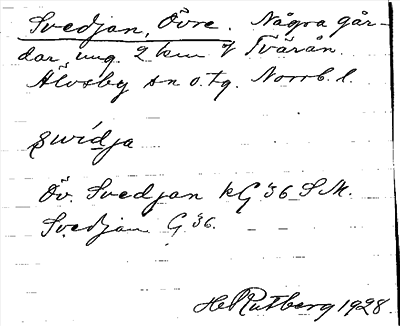 Svedjan, Övre. Några går-
dar ung. 2 km V Tvärån.
Älvsby sn o. tg. Norrb. l.
swídja
Öv. Svedjan kG 36 SM.
Svedjan G 36.
H. Rutberg 1928.